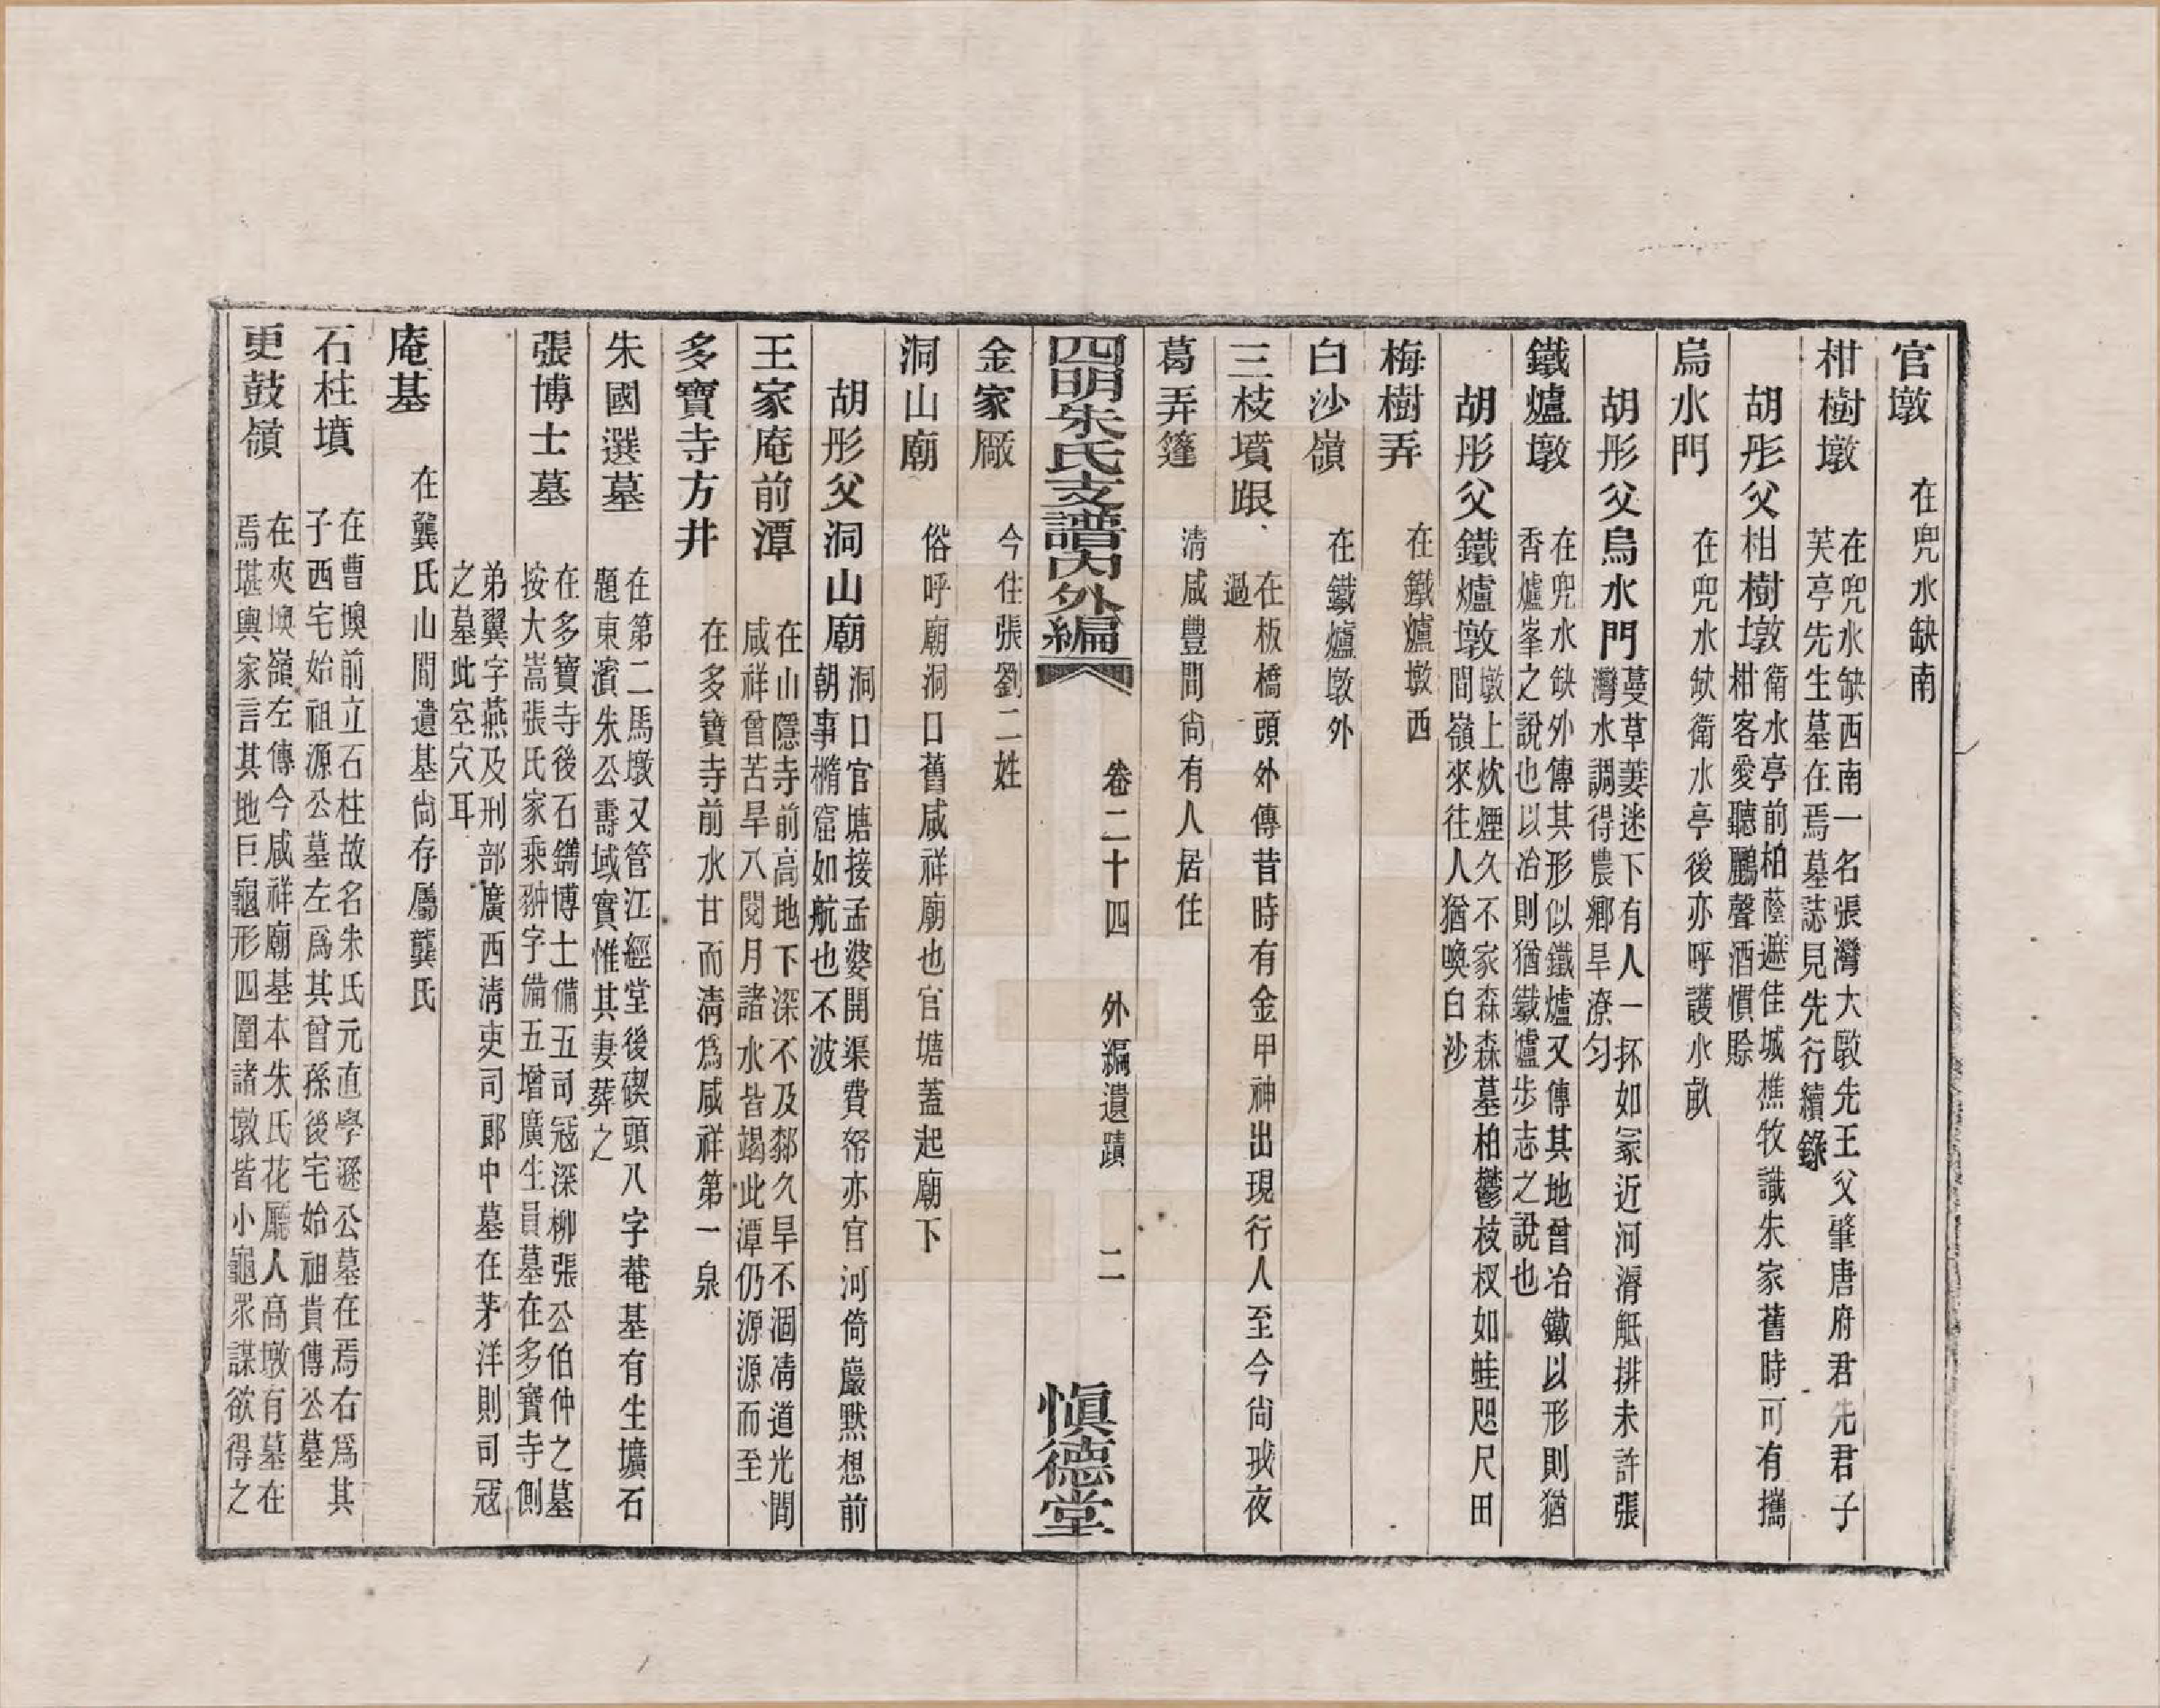 官墩 在兜水缺南
柑樹墩 在兜水缺西南一名張灣大墩先王父肇唐府君先君子
芙亭先生墓在焉墓誌見先行續錄
胡彤父柑樹墩 衛水亭前柏蔭遮佳城樵牧識朱家舊時可有攜
柑客愛聽鸝聲酒慣賒
烏水門 在兜水缺衛水亭後亦呼護水畝
胡彤父烏水門 蔓草萋迷下有人一抔如冢近河漘觝排未許張
灣水調得農鄉旱潦勻
鐵爐墩 在兜水缺外傳其形似鐵爐又傳其地曾冶鐵以形則猶
香爐峯之說也以冶則猶鐵爐步志之說也
胡彤父鐵爐墩 墩上炊煙久不家森森墓柏鬱枝杈如蛙咫尺田
間嶺來往人猶喚白沙
梅樹弄 在鐵爐墩西
白沙嶺 在鐵爐墩外
三枝墳跟 在板橋頭外傳昔時有金甲神出現行人至今尙戒夜
過
葛弄篷 淸咸豐間尙有人居住
四明朱氏支譜內外編 卷二十四 外編遺蹟 二 愼德堂
金家廠 今住張劉二姓
洞山廟 俗呼廟洞口舊咸祥廟也官塘蓋起廟下
胡彤父洞山廟 洞口官塘接孟婆開渠費帑亦官河倚巖默想前
朝事橢窟如航也不波
王家庵前潭 在山隱寺前高地下深不及鄰久旱不涸淸道光間
咸祥曾苦旱八閱月諸水皆竭此潭仍源源而至
多寶寺方井 在多寶寺前水甘而淸爲咸祥第一泉
朱國選墓 在第二馬墩又管江經堂後碶頭八字菴基有生壙石
題東濱朱公壽域實惟其妻葬之
張博士墓 在多寶寺後石鐫博士備五司冦深柳張公伯仲之墓
按大嵩張氏家乘翀字備五增廣生員墓在多寶寺側
弟翼字燕及刑部廣西淸吏司郞中墓在茅洋則司冦
之墓此空穴耳
庵基 在龔氏山間遺基尙存屬龔氏
石柱墳 在曹墺前立石柱故名朱氏元直學遜公墓在焉右爲其
子西宅始祖源公墓左爲其曾孫後宅始祖貴傳公墓
更鼓嶺 在夾墺嶺左傳今咸祥廟基本朱氏花廳人高墩有墓在
焉堪輿家言其地巨龜形四圍諸墩皆小龜衆謀欲得之